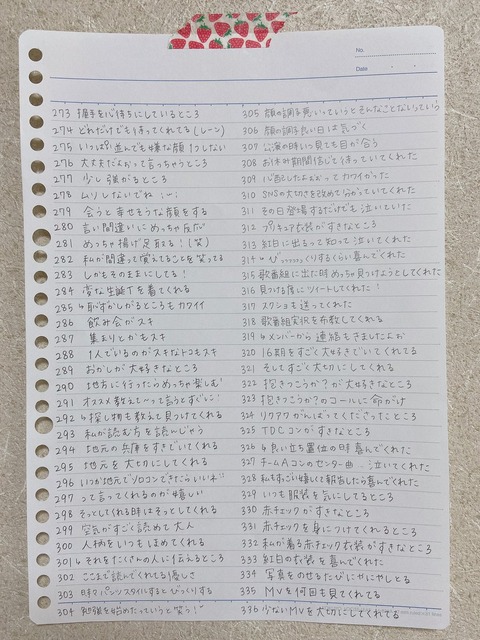 No.
Date
273 握手を心待ちにしているところ
274 どれだけでも待ってくれてる(レーン)
275 いっぱい並んでも嫌な顔1つしない
276 大丈夫だよおって言っちゃうところ
277 少し強がるところ
278 ムリしないでね
279 会うと幸せそうな顔をする
280 言い間違いにめっちゃ反応
281 めっちゃ揚げ足取る!(笑)
282 私が間違って覚えてることを笑ってる
283 しかもそのままにしてる!
284 変な生誕Tを着てくれる
285 恥ずかしがるところもカワイイ
286 飲み会がスキ
287 集まりとかもスキ
288 1人でいるのがスキなトコもスキ
289 おかしが大好きなところ
290 地方に行ったらめっちゃ楽しむ!
291 オススメ教えて〜って言うとすぐに!
292 探し物も教えて見つけてくれる
293 私が読む方を読んじゃう
294 地元の兵庫をすきでいてくれる
295 地元を大切にしてくれる
296 いつか地元でソロコンできたらいいネ
297 って言ってくれるのが嬉しい
298 そっとしてくれる時はそっとしてくれる
299 空気がすごく読めて大人
300 人柄をいつもほめてくれる
301 それをたくさんの人に伝えるところ
302 ここまで読んでくれてる優しさ
303 時々パンツスタイルにするとびっくりする
304 勉強を始めたっていうと笑う!
305 顔の調子良いっていうとそんなことないっていう
306 顔の調子良い日は気づく
307 公演の時いつ見ても目が合う
308 お休み期間信じて待っていてくれた
309 心配したよぉってカワイかった
310 SNSの大切さを改めて分かっていてくれた
311 その日登場するだけでも泣いていた
312 プリキュア衣装がすきなところ
313 紅白に出るって知って泣いてくれた
314 びっっっっっくりするくらい喜んでくれた
315 歌番組に出た時めっちゃ見つけようとしてくれた
316 見つける度にツイートしてくれた!
317 スクショも送ってくれた
318 歌番組実況を布教してくれる
319 メンバーから連絡もきましたよぉ
320 16期をすごく大好きでいてくれる
321 そしてすごく大切にしてくれる
322 抱きつこうか?が大好きなところ
323 抱きつこうか?のコールに命がけ
324 リクアワがんばってくださったところ
325 TDCコンがすきなところ
326 良い立ち位置の時喜んでくれた
327 チームAコンのセンター曲...泣いてくれた
328 私もすっごい嬉しくて報告したら喜んでくれた
329 いつも服装を気にしてるところ
330 赤チェックがすきなところ
331 赤チェックを身につけてくれるところ
332 私が着る赤チェック衣装がすきなところ
333 紅白の衣装を喜んでくれた
334 写真をのせるたびにニヤニヤしとる
335 MVを何回も見てくれてる
336 少ないMVを大切にしてくれてる